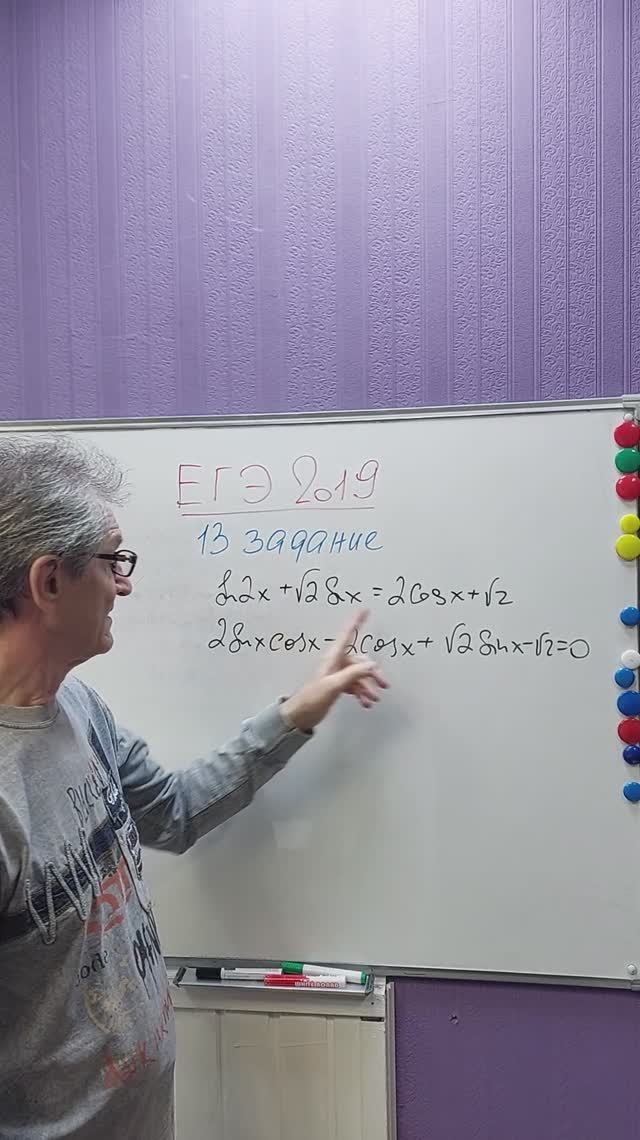 ЕГЭ 2019
13 задание
sin2x + √2 sinx = 2cosx + √2
2sinxcosx - 2cosx + √2 sinx - √2 = 0
WHITEBOARD